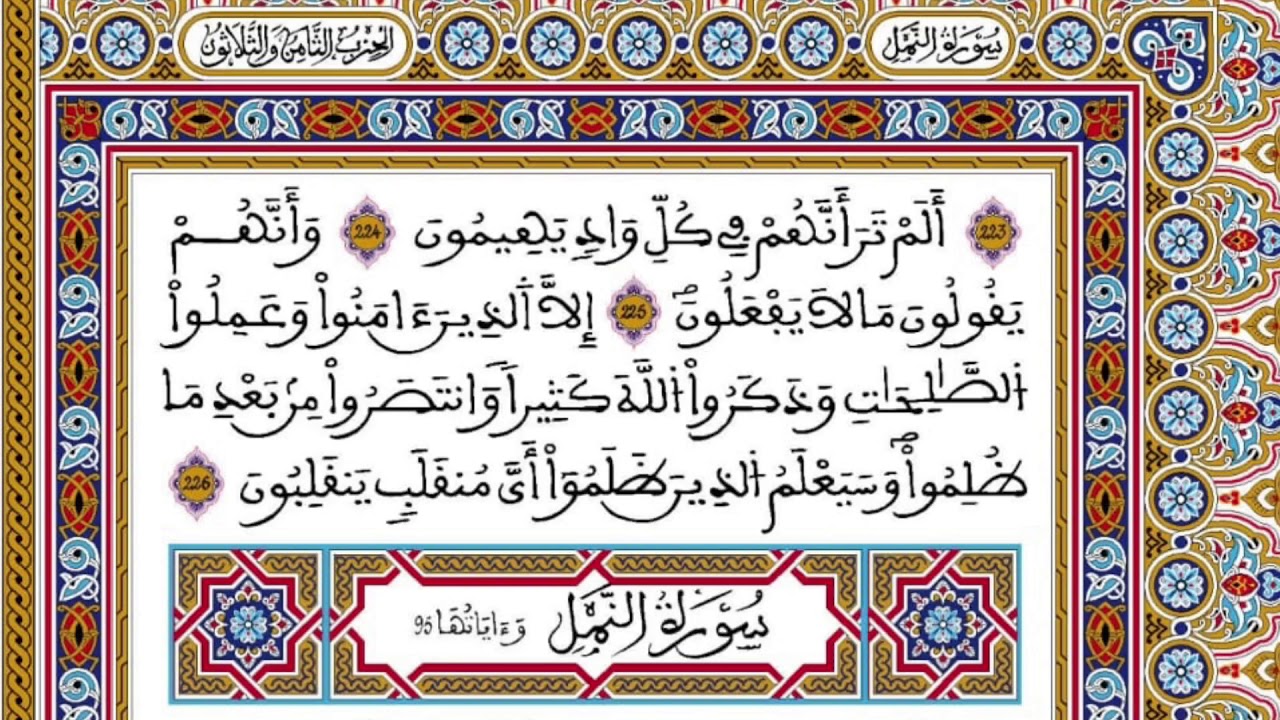 سُورَةُ النَّمْلِ
الحِزْبُ الثَّامِنُ وَالثَّلَاثُونَ
223 أَلَمْ تَرَ أَنَّهُمْ فِے كُلِّ وَادٖ يَهِيمُونَ 224 وَأَنَّهُمْ
يَقُولُونَ مَا لَا يَفْعَلُونَۖ 225 إِلَّا اَ۬لذِينَ ءَامَنُواْ وَعَمِلُواْ
اُ۬لصَّٰلِحَٰتِ وَذَكَرُواْ اُ۬للَّهَ كَثِيراٗ وَانتَصَرُواْ مِنۢ بَعْدِ مَا
ظُلِمُواْۖ وَسَيَعْلَمُ اُ۬لذِينَ ظَلَمُوٓاْ أَيَّ مُنقَلَبٖ يَنقَلِبُونَ 226
سُورَةُ النَّمْلِ وَءَايَاتُهَا 95